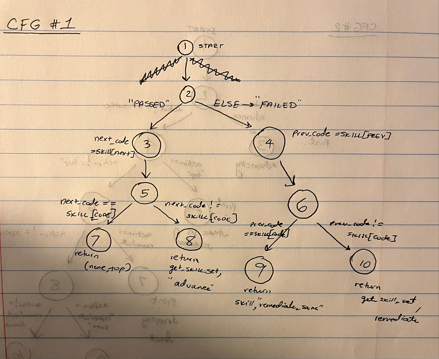 CFG #1
1 START
2
"PASSED" ELSE → "FAILED"
next_code
=skill[next]
3
4
prev_code =SKILL[PREV]
5
6
next_code ==
skill[code]
next_code !=
skill[code]
prev_code
==skill[code]
prev_code !=
skill[code]
7
8
9
10
return
(none, top)
return
get_skill_set,
"advance"
return
skill, "remediate_same"
return
get_skill_set,
remediate